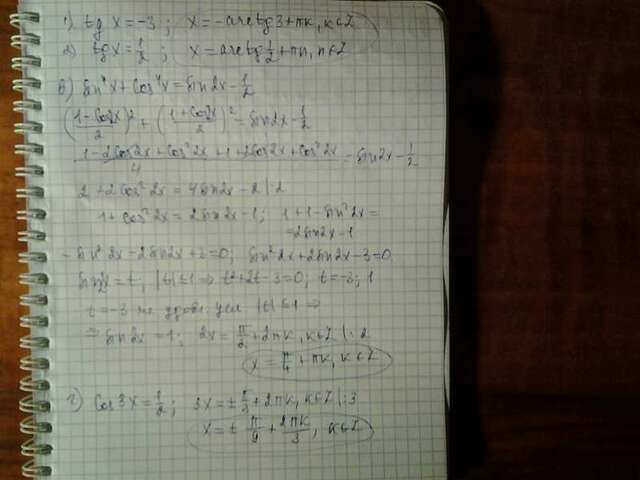 1) tg x = -3 ; x = -arctg 3 + πk, k∈Z
2) tg x = 1/2 ; x = arctg 1/2 + πn, n∈Z
в) sin⁴x + cos⁴x = sin2x - 1/2
((1-cos2x)/2)² + ((1+cos2x)/2)² = sin2x - 1/2
(1-2cos2x+cos²2x+1+2cos2x+cos²2x)/4 = sin2x - 1/2
2 + 2cos²2x = 4sin2x - 2 |:2
1 + cos²2x = 2sin2x - 1 ; 1+1-sin²2x =
= 2sin2x - 1
- sin²2x - 2sin2x + 3 = 0 ; sin²2x + 2sin2x - 3 = 0
sin2x = t, |t| ≤ 1 ⇒ t² + 2t - 3 = 0 ; t = -3 ; 1
t = -3 не удовл. усл |t| ≤ 1 ⇒
⇒ sin2x = 1 ; 2x = π/2 + 2πk, k∈Z |:2
x = π/4 + πk, k∈Z
г) cos3x = 1/2 ; 3x = ± π/3 + 2πk, k∈Z |:3
x = ± π/9 + 2πk/3, k∈Z